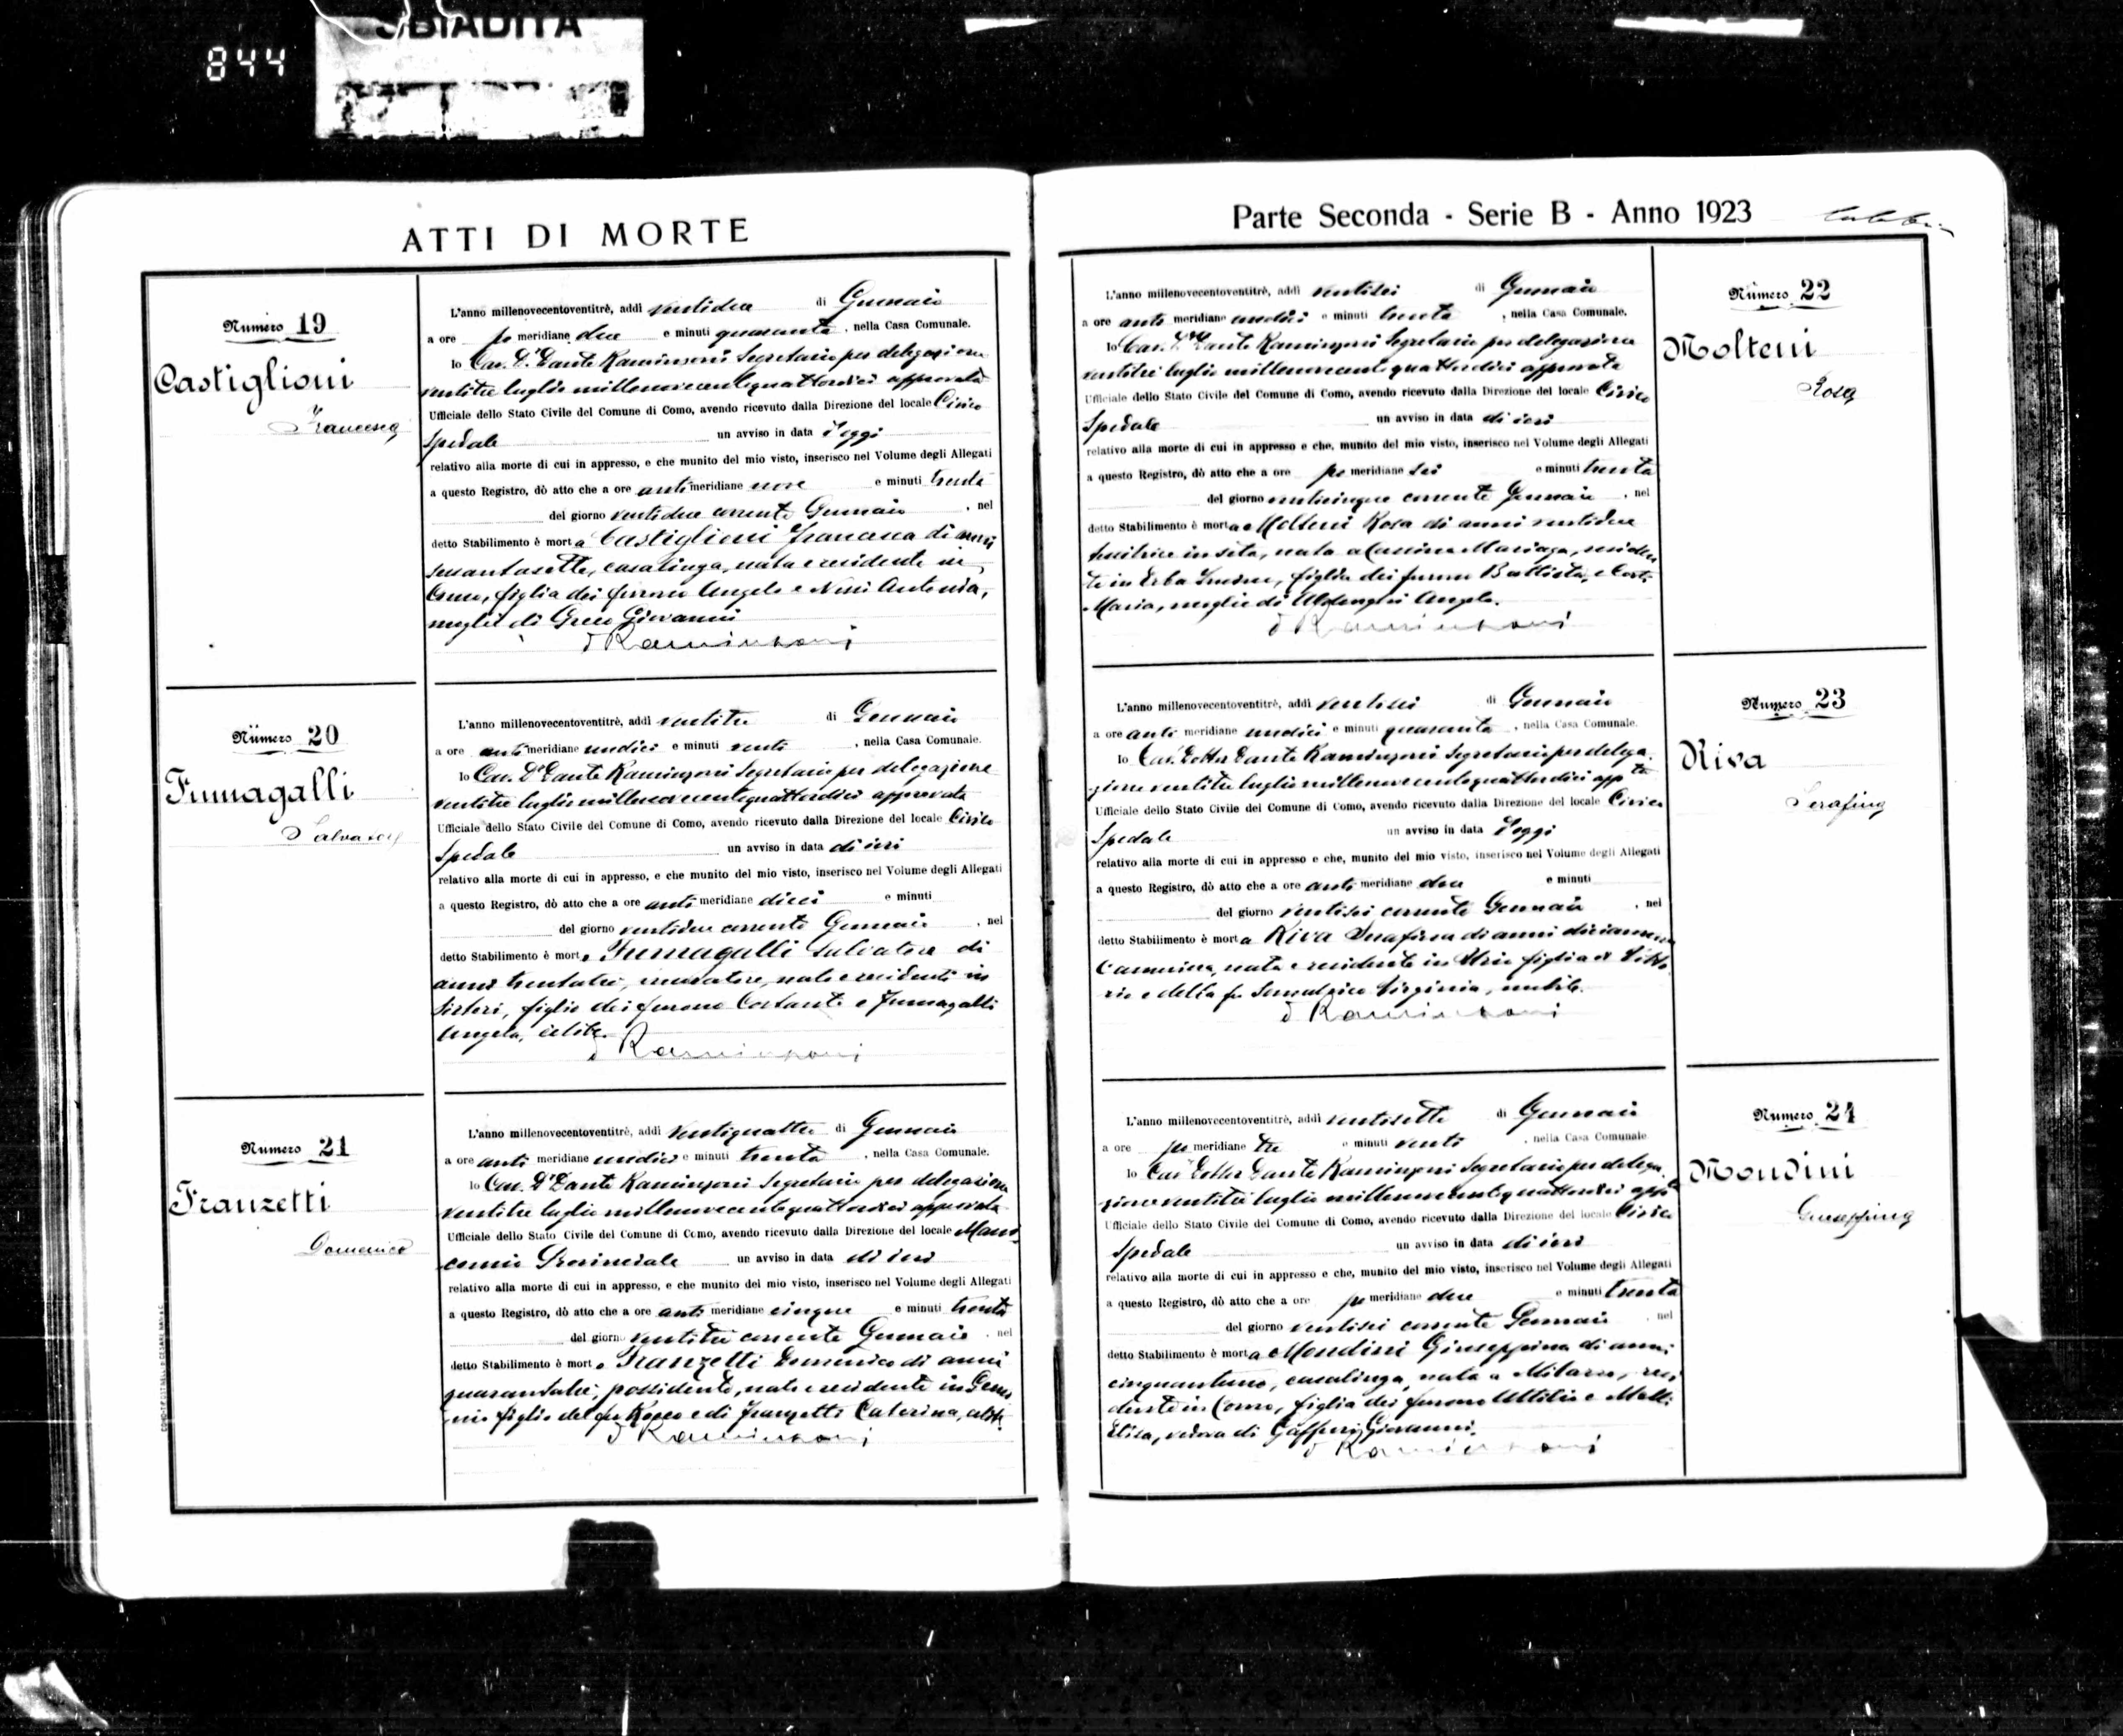 844
SBIADITA
ATTI DI MORTE
Numero 19
Castiglioni
Francesca
L'anno millenovecentoventitrè, addì ventidue di Gennaio
a ore po meridiane due e minuti quaranta, nella Casa Comunale.
Io Cav. Dr Dante Raminzoni Segretario per delegazione
ventitre luglio millenovecentoquattordici approvata
Ufficiale dello Stato Civile del Comune di Como, avendo ricevuto dalla Direzione del locale Civico
Spedale un avviso in data d'oggi
relativo alla morte di cui in appresso, e che munito del mio visto, inserisco nel Volume degli Allegati
a questo Registro, dò atto che a ore anti meridiane nove e minuti trenta
del giorno ventidue corrente Gennaio, nel
detto Stabilimento è morta Castiglioni Francesca di anni
sessantasette, casalinga, nata e residente in
Como, figlia dei furono Angelo e Antonia,
moglie di Greco Giovanni
D Raminzoni
Numero 20
Fumagalli
Salvatore
L'anno millenovecentoventitrè, addì ventitre di Gennaio
a ore anti meridiane undici e minuti venti, nella Casa Comunale.
Io Cav. Dr Dante Raminzoni Segretario per delegazione
ventitre luglio millenovecentoquattordici approvata
Ufficiale dello Stato Civile del Comune di Como, avendo ricevuto dalla Direzione del locale Civico
Spedale un avviso in data di ieri
relativo alla morte di cui in appresso, e che munito del mio visto, inserisco nel Volume degli Allegati
a questo Registro, dò atto che a ore anti meridiane dieci e minuti
del giorno ventidue corrente Gennaio, nel
detto Stabilimento è morto Fumagalli Salvatore di
anni trentatre, muratore, nato e residente in
Sirtori, figlio dei furono Costante e Fumagalli
Angela, celibe.
D Raminzoni
Numero 21
Franzetti
Domenico
L'anno millenovecentoventitrè, addì ventiquattro di Gennaio
a ore anti meridiane undici e minuti trenta, nella Casa Comunale.
Io Cav. Dr Dante Raminzoni Segretario per delegazione
ventitre luglio millenovecentoquattordici approvata
Ufficiale dello Stato Civile del Comune di Como, avendo ricevuto dalla Direzione del locale Mani
comio Provinciale un avviso in data di ieri
relativo alla morte di cui in appresso, e che munito del mio visto, inserisco nel Volume degli Allegati
a questo Registro, dò atto che a ore anti meridiane cinque e minuti trenta
del giorno ventitre corrente Gennaio, nel
detto Stabilimento è morto Franzetti Domenico di anni
quarantatre, possidente, nato e residente in Gemo
nio figlio del fu Rocco e di Franzetti Caterina, celibe.
D Raminzoni
Parte Seconda - Serie B - Anno 1923
Numero 22
Molteni
Rosa
L'anno millenovecentoventitrè, addì ventisei di Gennaio
a ore anti meridiane undici e minuti trenta, nella Casa Comunale.
Io Cav. Dr Dante Raminzoni Segretario per delegazione
ventitre luglio millenovecentoquattordici approvata
Ufficiale dello Stato Civile del Comune di Como, avendo ricevuto dalla Direzione del locale Civico
Spedale un avviso in data di ieri
relativo alla morte di cui in appresso e che, munito del mio visto, inserisco nel Volume degli Allegati
a questo Registro, dò atto che a ore po meridiane sei e minuti trenta
del giorno venticinque corrente Gennaio, nel
detto Stabilimento è morta Molteni Rosa di anni ventidue
tessitrice in seta, nata a Cassina Mariaga, residen
te in Erba Incino, figlia dei furono Battista, e
Maria, moglie di Aldeghi Angelo.
D Raminzoni
Numero 23
Riva
Serafina
L'anno millenovecentoventitrè, addì ventisei di Gennaio
a ore anti meridiane undici e minuti quaranta, nella Casa Comunale.
Io Cav. Dottor Dante Raminzoni Segretario per delega
zione ventitre luglio millenovecentoquattordici appta
Ufficiale dello Stato Civile del Comune di Como, avendo ricevuto dalla Direzione del locale Civico
Spedale un avviso in data d'oggi
relativo alla morte di cui in appresso e che, munito del mio visto, inserisco nel Volume degli Allegati
a questo Registro, dò atto che a ore anti meridiane due e minuti
del giorno ventisei corrente Gennaio, nel
detto Stabilimento è morta Riva Serafina di anni diciannove
nata e residente in Urio figlia di Vitto
rio e della fu Virginia, nubile.
D Raminzoni
Numero 24
Mondini
Giuseppina
L'anno millenovecentoventitrè, addì ventisette di Gennaio
a ore po meridiane tre e minuti venti, nella Casa Comunale
Io Cav. Dottor Dante Raminzoni Segretario per delega
zione ventitre luglio millenovecentoquattordici appta
Ufficiale dello Stato Civile del Comune di Como, avendo ricevuto dalla Direzione del locale Civico
Spedale un avviso in data di ieri
relativo alla morte di cui in appresso e che, munito del mio visto, inserisco nel Volume degli Allegati
a questo Registro, dò atto che a ore po meridiane due e minuti trenta
del giorno ventisei corrente Gennaio nel
detto Stabilimento è morta Mondini Giuseppina di anni
cinquantuno, casalinga, nata a Milano, resi
dente in Como, figlia dei furono Attilio e
Elisa, vedova di Gaffuri Giovanni.
D Raminzoni